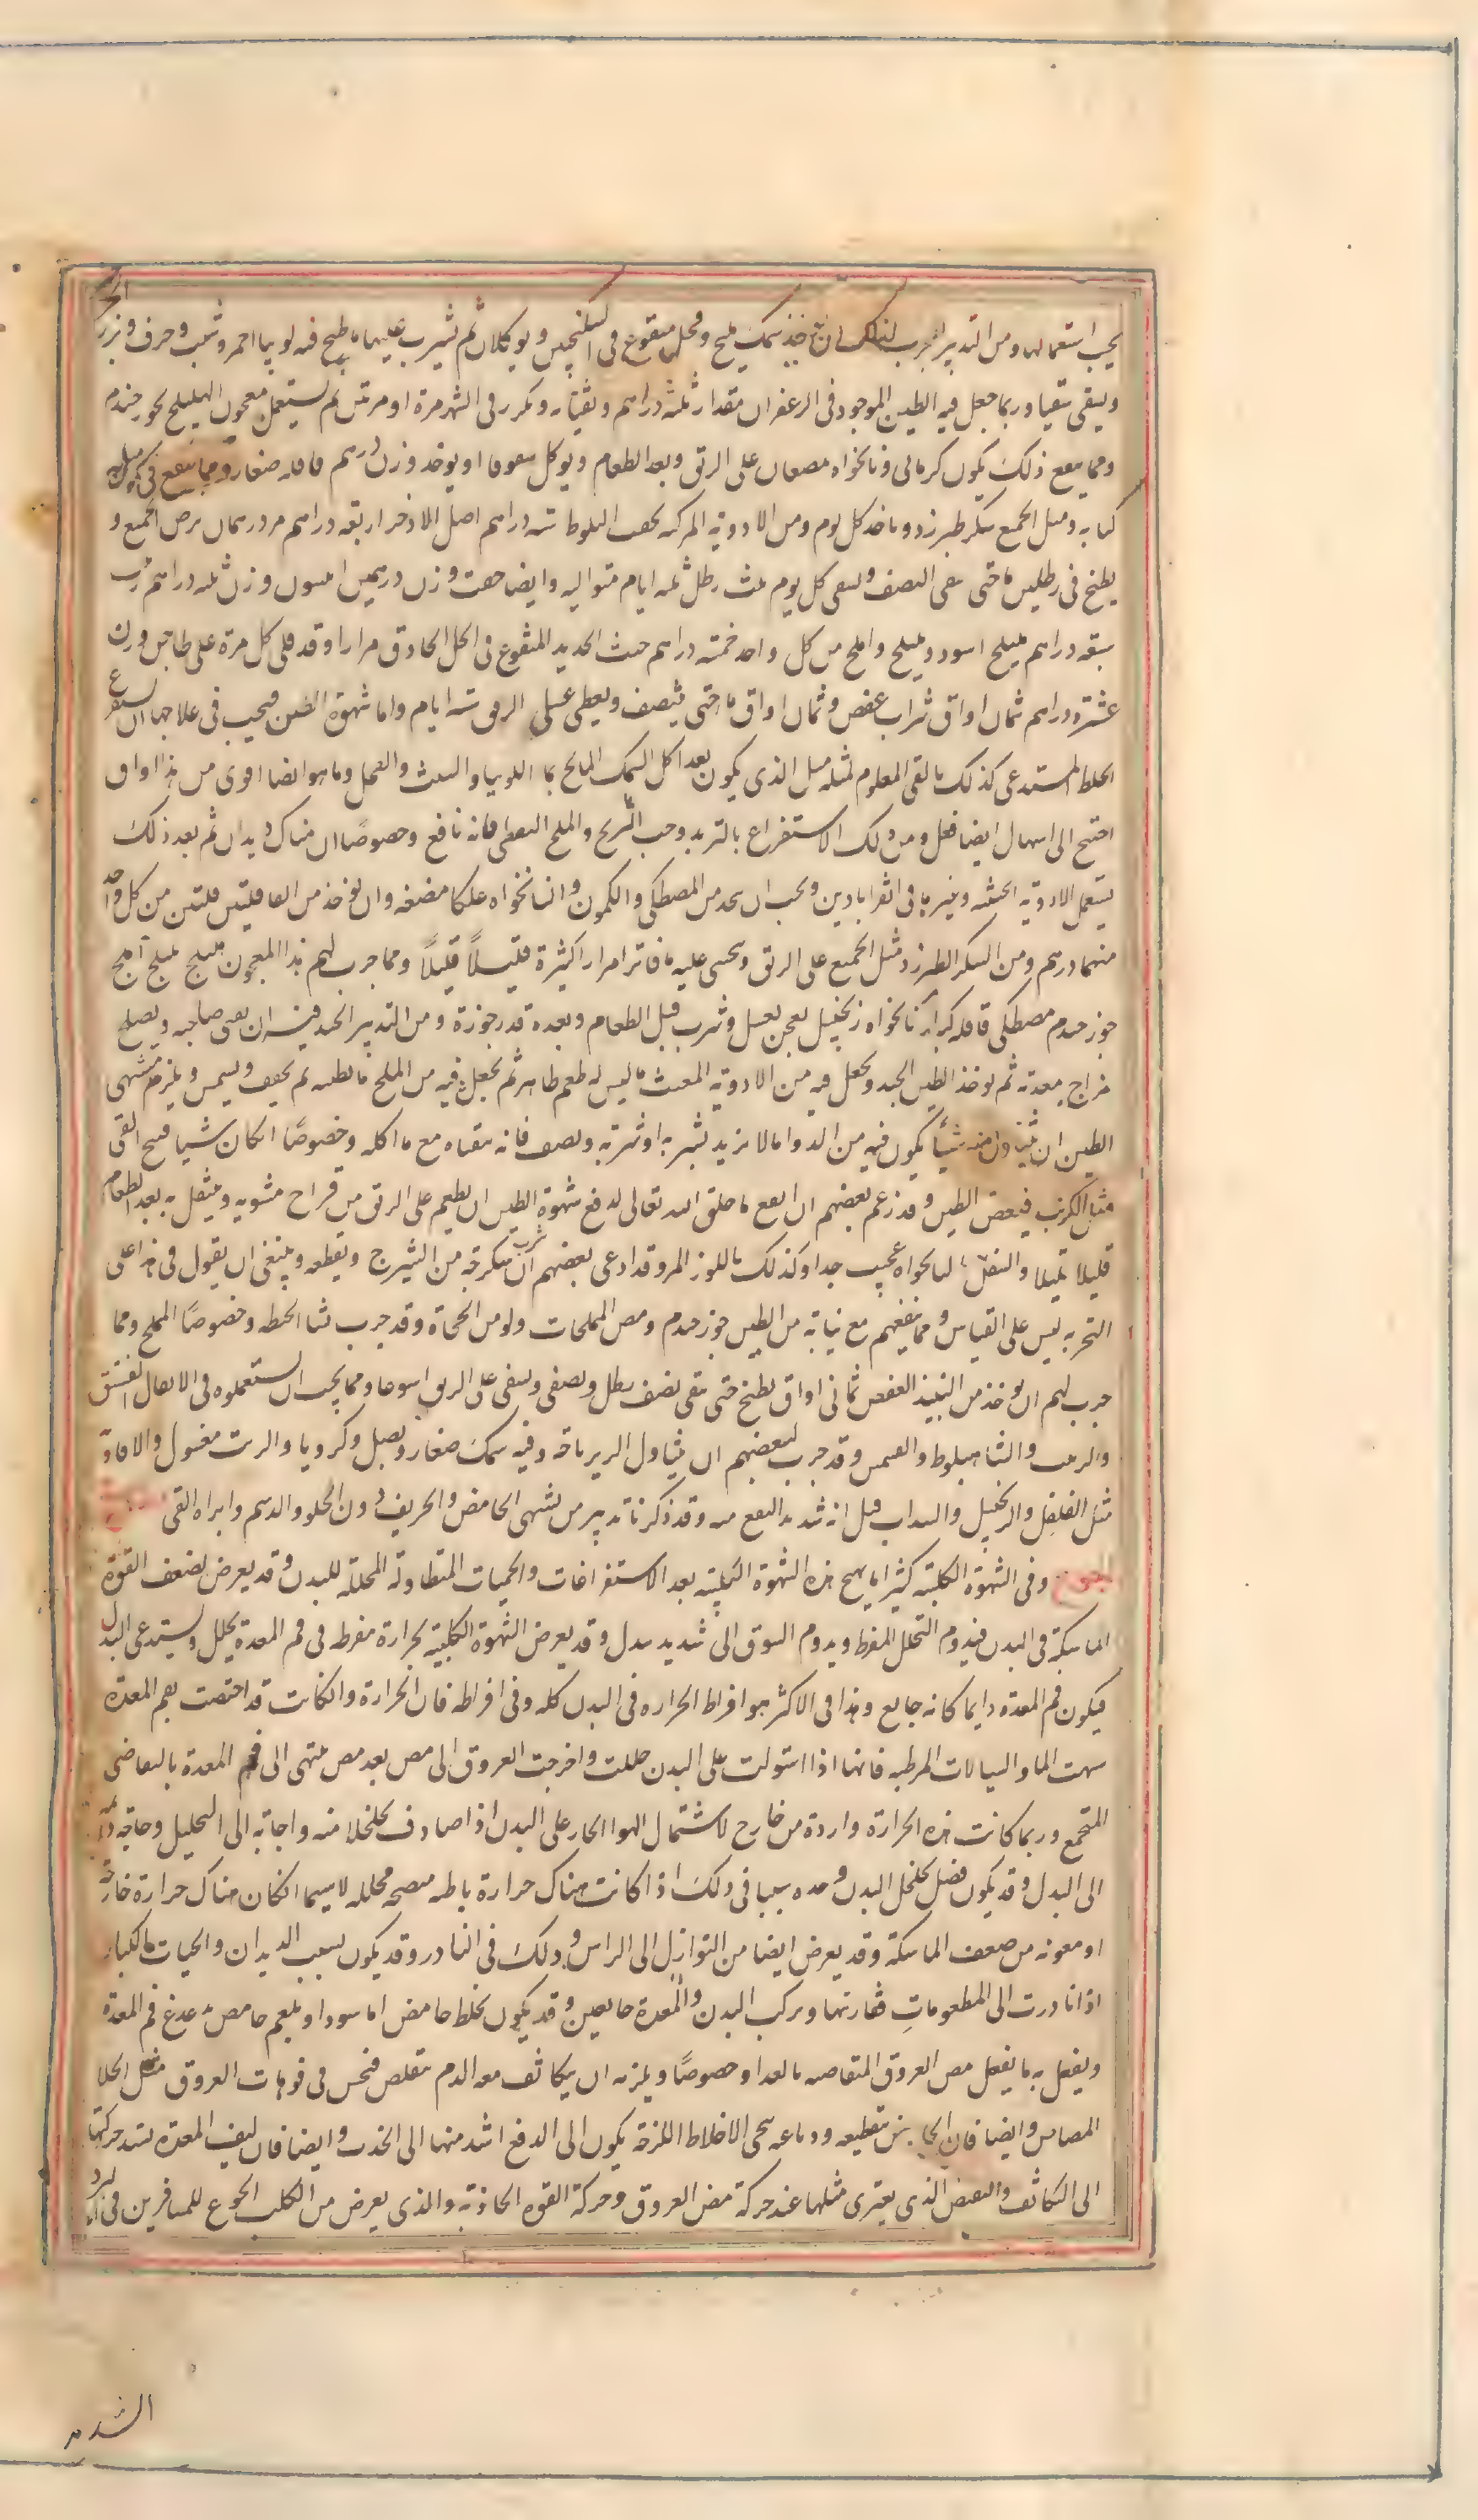 يجب استعمالها ومن التدبير المجرب لذلك ان يؤخذ سمك مليح وفجل منقوع فى السكنجبين ويوكلان ثم يشرب عليهما ما طبخ فيه لوبيا احمر وشبث وحرف وبزر الجرجير
ويسقى سقيا وربما جعل فيه الطين الموجود فى الزعفران مقدار ثلثة دراهم ويقياء ويكرر فى الشهر مرة او مرتين ثم يستعمل معجون الهليلج بجوز جندم
ومما ينفع ذلك كمون كرمانى ونانخواه يمضغان على الريق وبعد الطعام ويوكل سفوفا او يوخذ وزن درهم قاقله صغار
كبابه ومثل الجميع سكر طبرزد وياخذ كل يوم ومن الادوية المركبه جفت البلوط سته دراهم اصل الاذخر اربعة دراهم يرض الجميع و
يطبخ فى رطلين ما حتى يبقى النصف ويسقى كل يوم ثلث رطل ثلثه ايام متواليه وايضا جفت وزن درهمين انيسون وزن ثلثه دراهم زبيب
سبعة دراهم هليلج اسود وبليلج واملج من كل واحد خمسة دراهم خبث الحديد المنقوع فى الخل الحاذق مرارا وقد قلى كل مرة على طاجن وزن
عشرة دراهم ثمان اواق شراب عفص وثمان اواق ما حتى ينتصف ويعطى على الريق سته ايام واما شهوة الطين فيجب فى علاجها ان يستفرغ
الخلط المستدعى كذلك بالقى المعلوم لمثله مثل الذى يكون بعد اكل السمك المالح بما اللوبيا والشبث والفجل وما هو ايضا اقوى من هذا وان
احتيج الى اسهال ايضا فعل ومن ذلك الاستفراغ بالتربد وحب البرنج والملح النفطى فانه نافع وخصوصًا ان هناك ديدان ثم بعد ذلك
يستعمل الادوية الخبثيه وغيرها فى القراباذين ويجب ان يتخذ من المصطكى والكمون والنانخواه علكا مضغه وان يوخذ من القاقلتين من كل واحد
منهما درهم ومن السكر الطبرزد مثل الجميع على الريق ويتحسى عليه ما فاترا مرارا كثيرة قليلاً قليلاً ومما جرب لهم هذا المعجون هليلج بليلج املج
جوز جندم مصطكى قاقله كبار نانخواه زنجبيل يعجن بعسل ويشرب قبل الطعام وبعده قدر جوزة ومن التدبير الجيد فيه ان يقى صاحبه ويصلح
مزاج معدته ثم يوخذ الطين الجيد ويجعل فيه من الادوية المقيئه ما ليس له طعم ظاهر ثم يجعل فيه من الملح ما يطيبه ثم يجفف ويشمس ويلزم مشتهى
الطين ان يتناول منه شيئاً يكون فيه من الدوا ما لا يزيد بشربه او شربة ونصف فانه يتقياه مع ما اكله وخصوصًا ان كان شيا قبيح القى
مثل الكرنب فيبغض الطين وقد زعم بعضهم ان انفع ما خلق الله تعالى لدفع شهوة الطين ان يطعم على الريق من فراخ مشويه ويتنقل به بعد الطعام
قليلا قليلا والتنقل بالنانخواه عجيب جدا وكذلك باللوز المر وقد ادعى بعضهم ان شرب سكرجة من الشيرج يقطعه وينبغى ان يقول فى هذا على
التجربه ليس على القياس ومما ينفعهم مع نيابة من الطين جوز جندم ومص المملحات ولو من الحجاة وقد جرب نشا الحنطه وخصوصًا المملح ومما
جرب لهم ان يوخذ من النبيذ العفص ثمانى اواق يطبخ حتى يبقى نصف رطل ويصفى ويسقى على الريق اسبوعا ومما يجب ان يستعملوه فى الانتقال الفستق
والزبيب والشاهبلوط وقد جرب لبعضهم ان يتناول الزيرباجه وفيه سمك صغار وبصل وكرويا والزيت مغسول والافاويه
مثل الفلفل والزنجبيل والسداب قيل انه شديد النفع منه وقد ذكرنا تدبير من يشتهى الحامض والحريف دون الحلو والدسم وابراه القى
الجوع وفى الشهوة الكلبية كثيرا ما يهيج هذه الشهوة الكلبية بعد الاستفراغات والحميات المتطاولة المحللة للبدن وقد يعرض لضعف القوة
الماسكة فى البدن فيدوم التحلل المفرط ويدوم الشوق الى شديد بدل وقد يعرض الشهوة الكلبية لحرارة مفرطه فى فم المعدة يحلل ويستدعى البدل
فيكون فم المعدة دايما كانه جايع وهذا فى الاكثر هو افراط الحراره فى البدن كله وفى افراطه فان الحرارة وان كانت قد اختصت بفم المعدة
شهت الما والسيالات المرطبه فانها اذا استولت على البدن حللت واخرجت العروق الى مص بعد مص ينتهى الى فم المعدة بالتقاضى
المتجمع وربما كانت هذه الحرارة واردة من خارج لاشتمال الهوا الحار على البدن اذا صادف تخلخلا منه واجابة الى التحليل وحاجة
الى البدل وقد يكون فضل تخلخل البدن وحده سببا فى ذلك اذا كانت هناك حرارة باطنه منضجه محلله لا سيما ان كان هناك حرارة خارجة
او معونه من ضعف الماسكة وقد يعرض ايضا من النوازل الى الراس وذلك فى النادر وقد يكون لسبب الديدان والحيات الكبار
اذا نادرت الى المطعومات ففازتها وتركت البدن والمعدة جايعين وقد يكون لخلط حامض اما سودا او بلغم حامض يدغدغ فم المعدة
ويفعل به ما يفعل مص العروق المتقاضيه بالغداء وخصوصًا ويلزمه ان يتكاثف معه الدم يتقلص فيحس فى فوهات العروق مثل الجلا
المصاص وايضا فان الحامض بتقطيعه ودباغه ينحى الاخلاط اللزجة يكون الى الدفع اشد منها الى الجذب وايضا فان ليف المعدة يشتد حركتها
الى التكاثف والتقبض الذى يعترى مثلها عند حركة مص العروق وحركة القوه الجاذبة والذى يعرض من الكلب الجوع للمسافرين فى البرد
الشديد